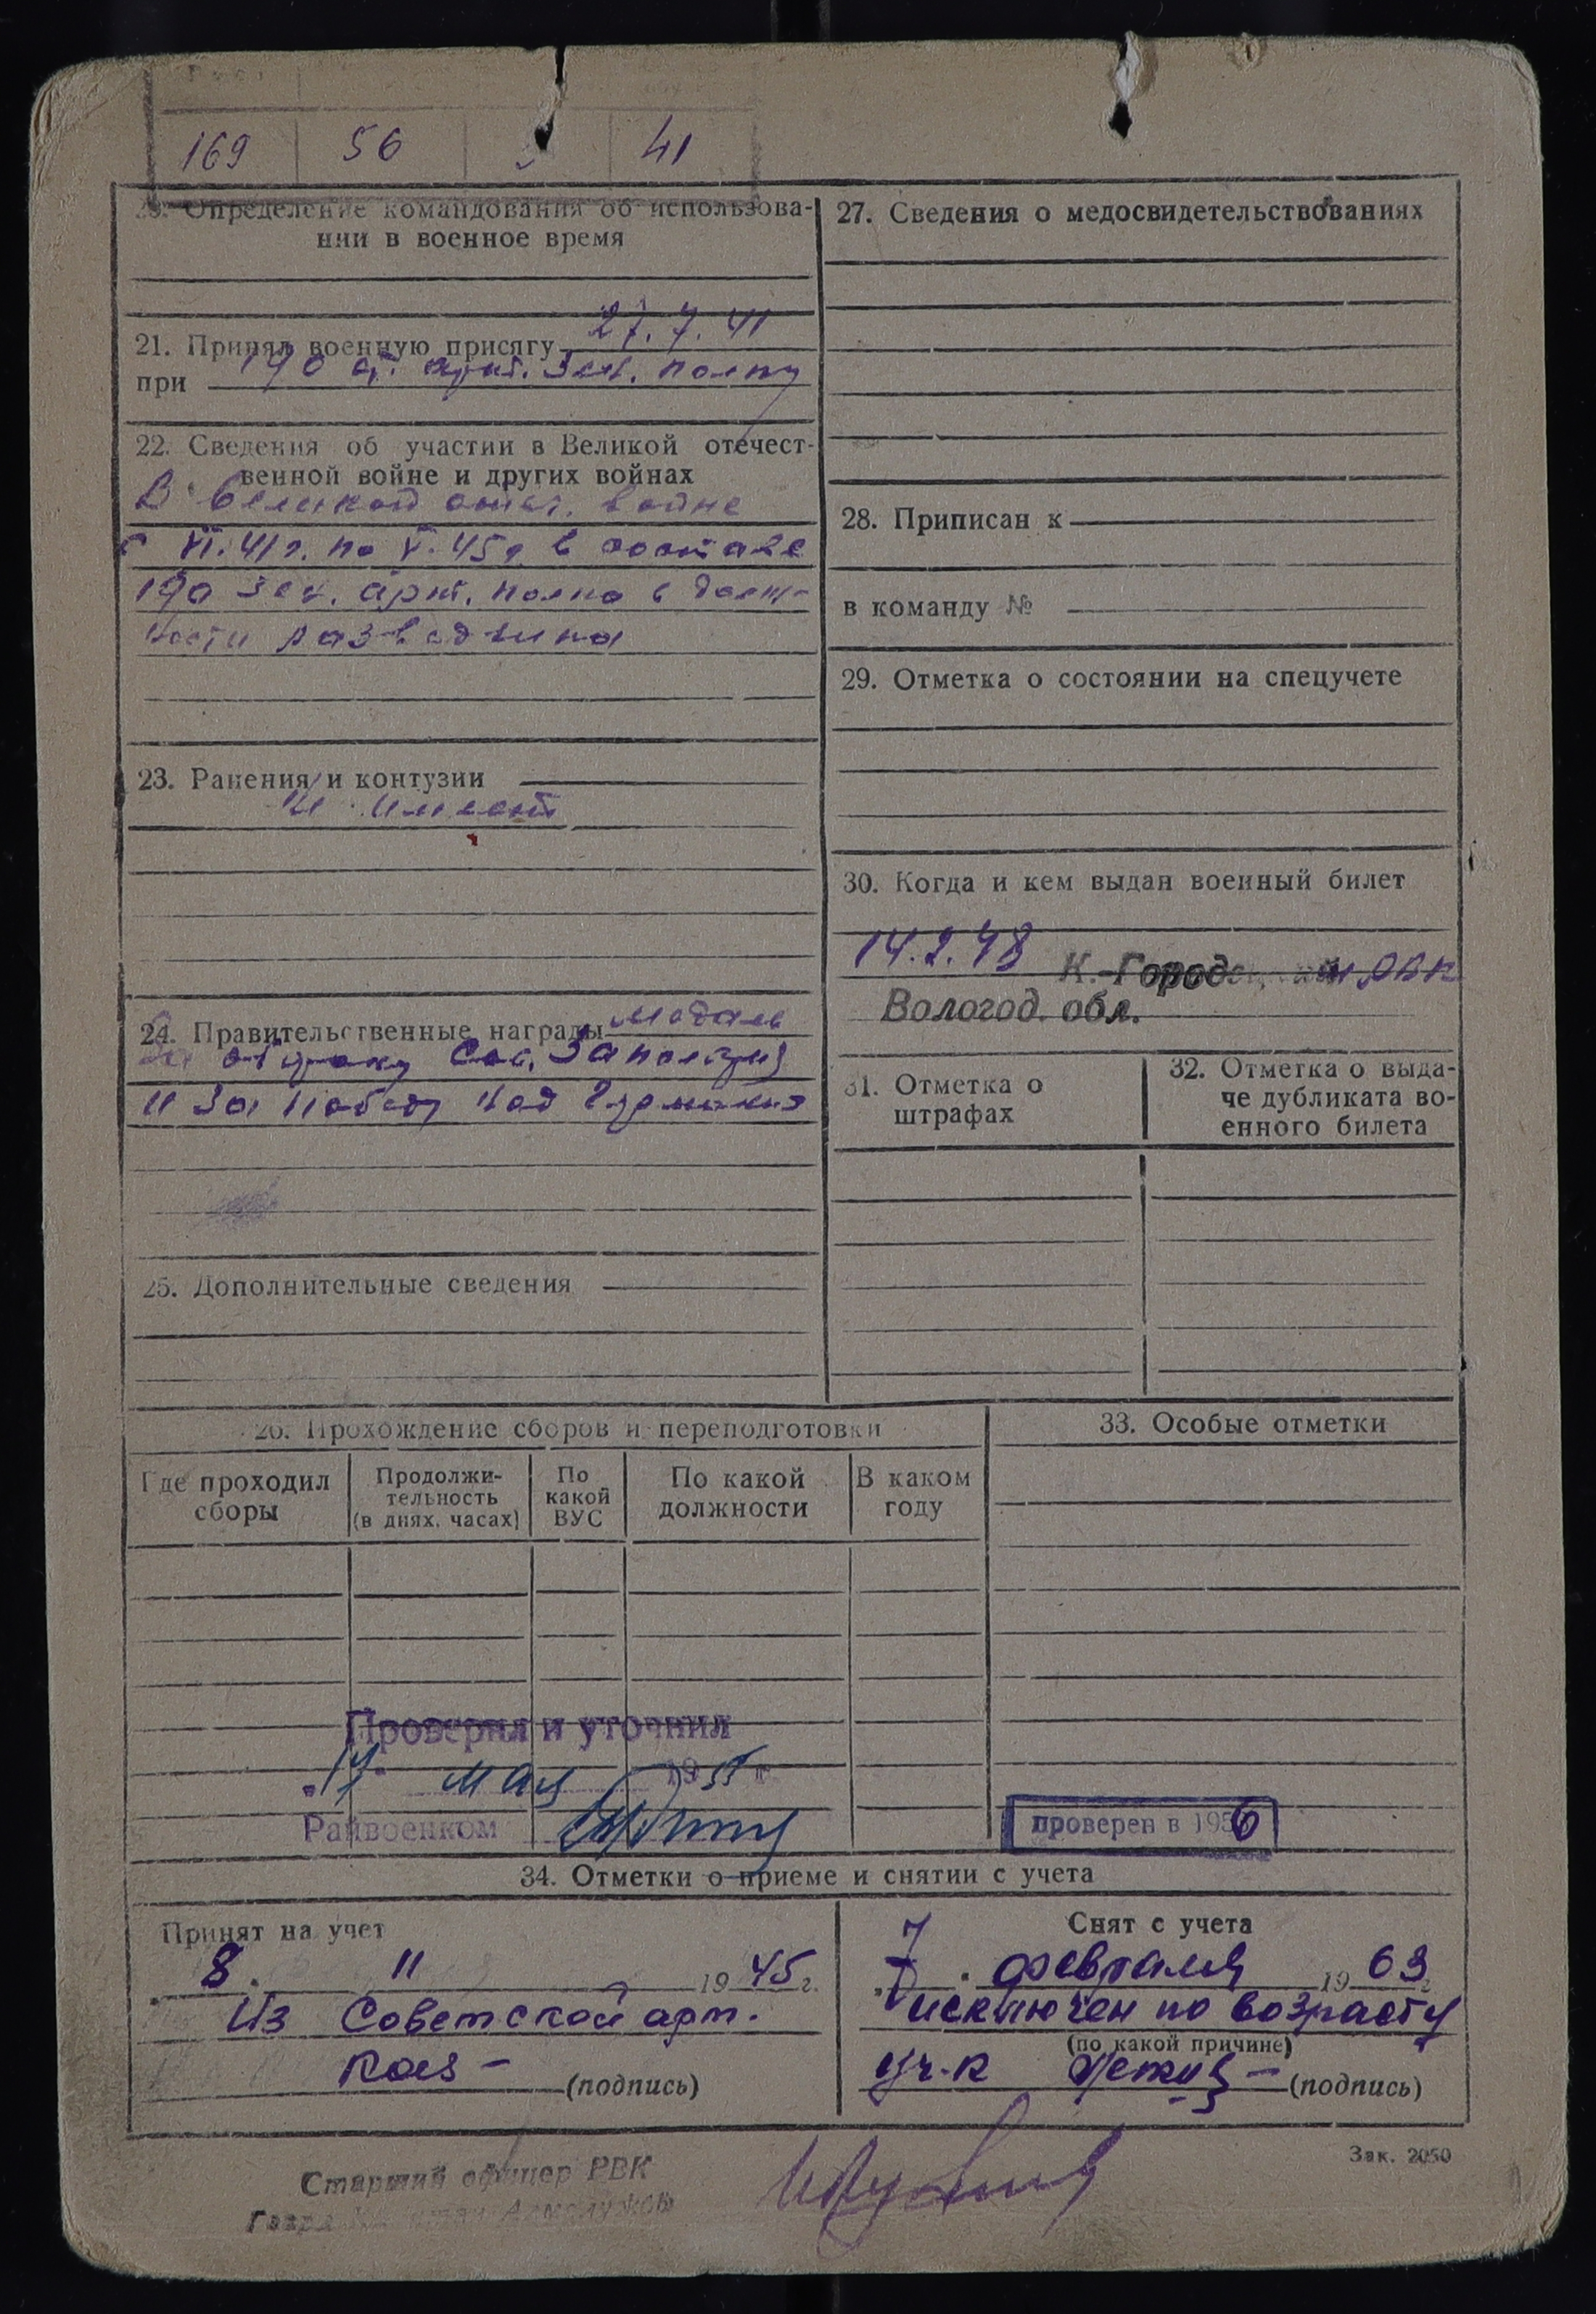 169 56 41
20. Определение командования об использова-
нии в военное время
21. Принял военную присягу 27.7.41
при 190 арт. зен. полку
22. Сведения об участии в Великой отечест-
венной войне и других войнах
В Великой отеч. войне
с VI.41г. по V.45г. в составе
190 зен. арт. полка в долж-
ности разведчика
23. Ранения и контузии
имеет
24. Правительственные награды медаль
За оборону Сов. Заполярия
и За победу над Германией
25. Дополнительные сведения
27. Сведения о медосвидетельствованиях
28. Приписан к
в команду №
29. Отметка о состоянии на спецучете
30. Когда и кем выдан военный билет
14.2.48 К.-Городецким РВК
Вологод. обл.
31. Отметка о
штрафах
32. Отметка о выда-
че дубликата во-
енного билета
26. Прохождение сборов и переподготовки
Где проходил
сборы
Продолжи-
тельность
(в днях, часах)
По
какой
ВУС
По какой
должности
В каком
году
33. Особые отметки
Проверил и уточнил
"17" мая 1955 г
Райвоенком
проверен в 1956
34. Отметки о приеме и снятии с учета
Принят на учет
8. 11 1945 г.
Из Советской арт.
(подпись)
Снят с учета
7
7 февраля 1963 г
исключен по возрасту
(по какой причине)
(подпись)
Зак. 2050
Старший офицер РВК